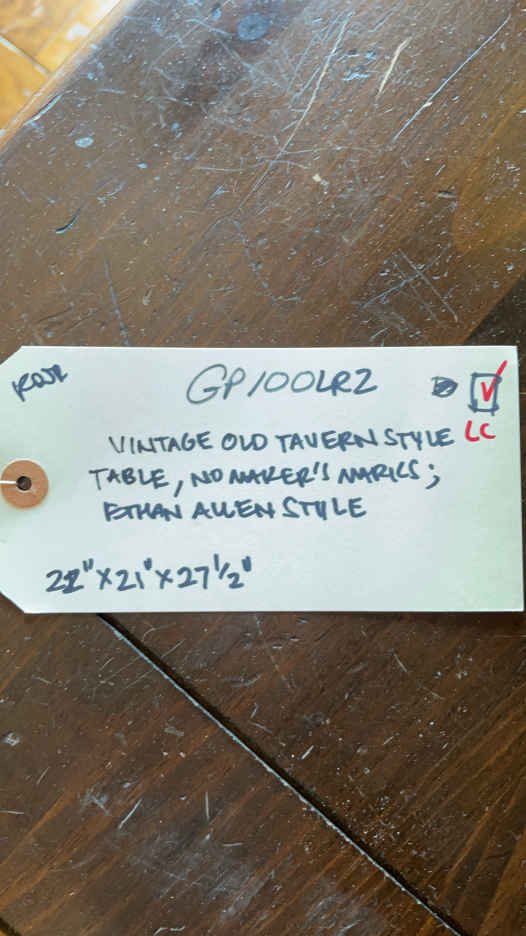 GP100LR2
VINTAGE OLD TAVERN STYLE LC
TABLE, NO MAKER'S MARKS;
ETHAN ALLEN STYLE
22" X 21" X 27 1/2"